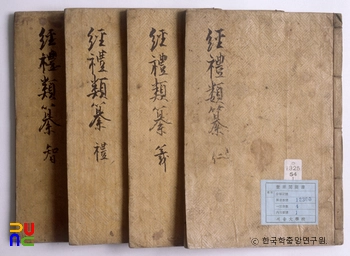 經禮類纂 仁
經禮類纂 義
經禮類纂 禮
經禮類纂 智
1325
54
© 한국학중앙연구원